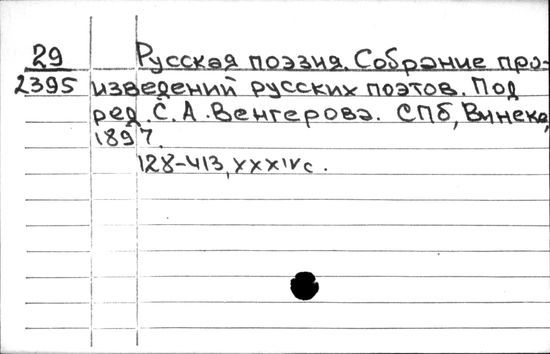 29 Русская поэзия. Собрание про-
2395 изведений русских поэтов. Под
ред. С. А. Венгерова. СПб, Винеке,
1897.
128-413, XXXIV с.